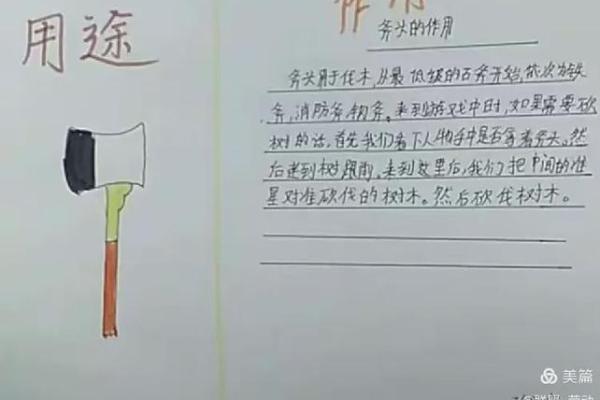 用途
作用
斧头的作用
斧头用于伐木,从最低级的石斧开始,依次为铁
斧,消防斧,钢斧。来到游戏中时,如果需要砍
树的话,首先我们看下人物手中是否拿着斧头。然
后走到树跟前,来到这里后,我们把中间的准
星对准砍伐的树木。然后砍伐树木。
美篇